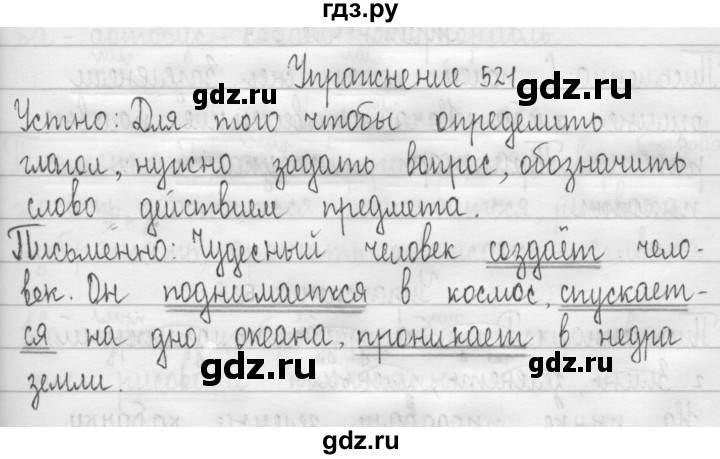 гдз.ру
Упражнение 521
gdz.ru
Устно: Для того чтобы определить
глагол, нужно задать вопрос, обозначить
слово действием предмета.
gdz.ru gdz.ru
Письменно: Чудесный человек создаёт чело-
век. Он поднимается в космос, спускает-
gdz.ru gdz.ru
ся на дно океана, проникает в недра
земли.
gdz.ru